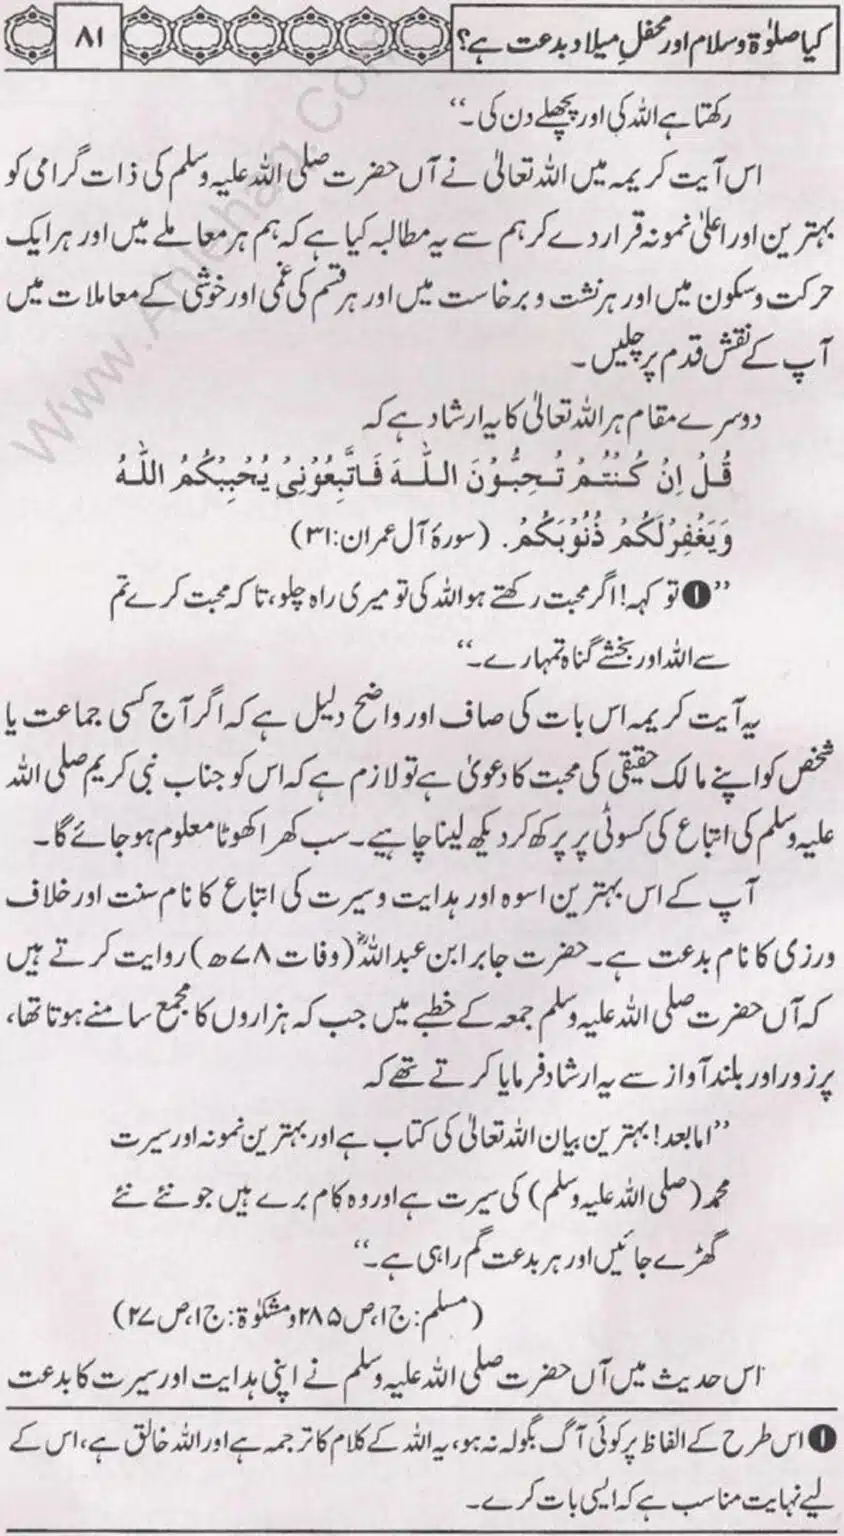 کیا صلوٰۃ وسلام اور محفلِ میلاد بدعت ہے؟
۸۱
رکھتا ہے اللہ کی اور پچھلے دن کی۔‘‘
اس آیت کریمہ میں اللہ تعالیٰ نے آں حضرت صلی اللہ علیہ وسلم کی ذات گرامی کو
بہترین اور اعلیٰ نمونہ قرار دے کر ہم سے یہ مطالبہ کیا ہے کہ ہم ہر معاملے میں اور ہر ایک
حرکت وسکون میں اور ہر نشت و برخاست میں اور ہر قسم کی غمی اور خوشی کے معاملات میں
آپ کے نقش قدم پر چلیں۔
دوسرے مقام ہر اللہ تعالیٰ کا یہ ارشاد ہے کہ
قُلْ اِنْ كُنْتُمْ تُحِبُّوْنَ اللّٰهَ فَاتَّبِعُوْنِیْ يُحْبِبْكُمُ اللّٰهُ
وَيَغْفِرْلَكُمْ ذُنُوْبَكُمْ. (سورۂ آل عمران:۳۱)
’’❶ تو کہہ! اگر محبت رکھتے ہو اللہ کی تو میری راہ چلو، تاکہ محبت کرے تم
سے اللہ اور بخشے گناہ تمہارے۔‘‘
یہ آیت کریمہ اس بات کی صاف اور واضح دلیل ہے کہ اگر آج کسی جماعت یا
شخص کو اپنے مالک حقیقی کی محبت کا دعویٰ ہے تو لازم ہے کہ اس کو جناب نبی کریم صلی اللہ
علیہ وسلم کی اتباع کی کسوٹی پر پرکھ کر دیکھ لینا چاہیے۔ سب کھرا کھوٹا معلوم ہو جائے گا۔
آپ کے اس بہترین اسوہ اور ہدایت وسیرت کی اتباع کا نام سنت اور خلاف
ورزی کا نام بدعت ہے۔ حضرت جابر ابن عبداللہؓ (وفات ۷۸ھ) روایت کرتے ہیں
کہ آں حضرت صلی اللہ علیہ وسلم جمعہ کے خطبے میں جب کہ ہزاروں کا مجمع سامنے ہوتا تھا،
پرزور اور بلند آواز سے یہ ارشاد فرمایا کرتے تھے کہ
’’اما بعد! بہترین بیان اللہ تعالیٰ کی کتاب ہے اور بہترین نمونہ اور سیرت
محمد (صلی اللہ علیہ وسلم) کی سیرت ہے اور وہ کام برے ہیں جو نئے نئے
گھڑے جائیں اور ہر بدعت گم راہی ہے۔‘‘
(مسلم: ج۱، ص۲۸۵ و مشکوٰۃ: ج۱، ص۲۷)
اس حدیث میں آں حضرت صلی اللہ علیہ وسلم نے اپنی ہدایت اور سیرت کا بدعت
❶ اس طرح کے الفاظ پر کوئی آگ بگولہ نہ ہو، یہ اللہ کے کلام کا ترجمہ ہے اور اللہ خالق ہے، اس کے
لیے نہایت مناسب ہے کہ ایسی بات کرے۔